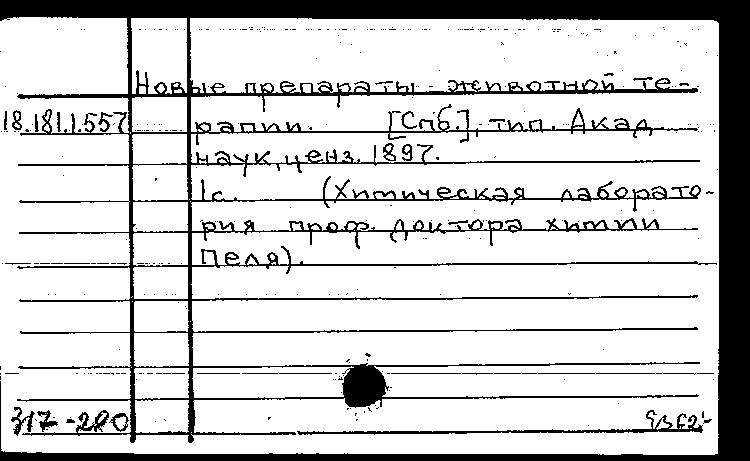 Новые препараты животной те-
18.181.1.557 рапии. [Спб.], тип. Акад
наук, ценз. 1897.
1с. (Химическая лаборато-
рия проф. доктора химии
Пеля).
317-280